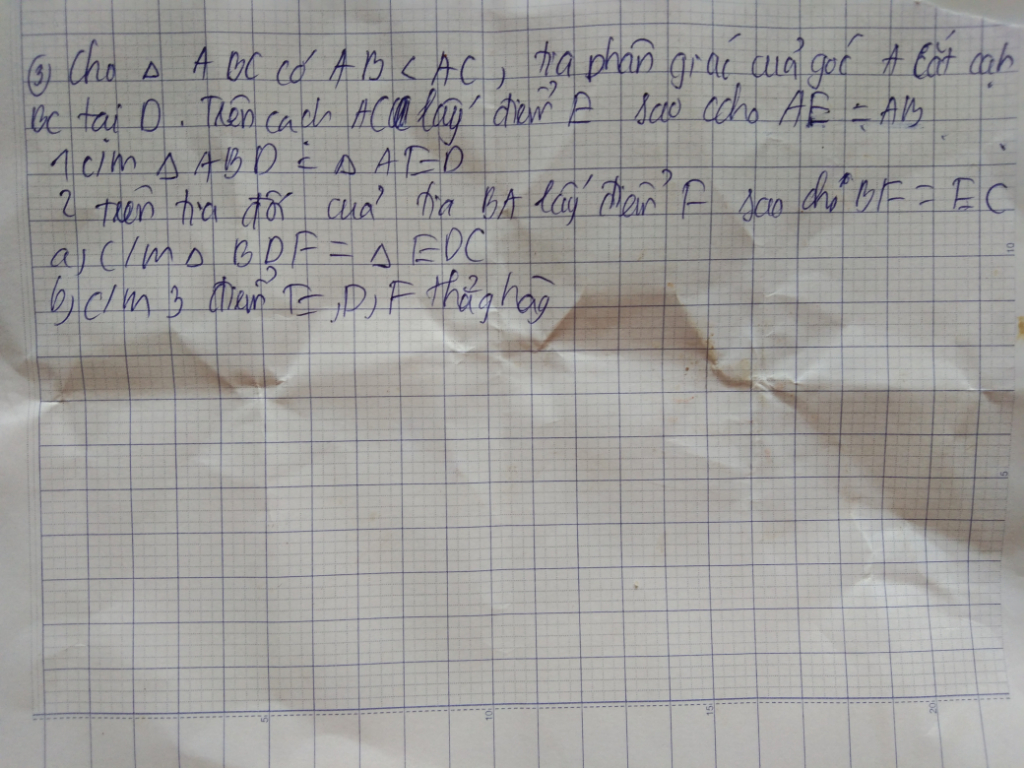 ③ Cho △ ABC có AB < AC, tia phân giác cuả góc A Cắt cạh
BC tại D. Trên cach AC lấy điểm E sao ccho AE = AB
1 c/m △ ABD = △ AED
2 trên tia đối cuả tia BA lấy điểm F sao cho BF = EC
a, C/m △ BDF = △ EDC
b, c/m 3 điểm E, D, F thẳg hàg